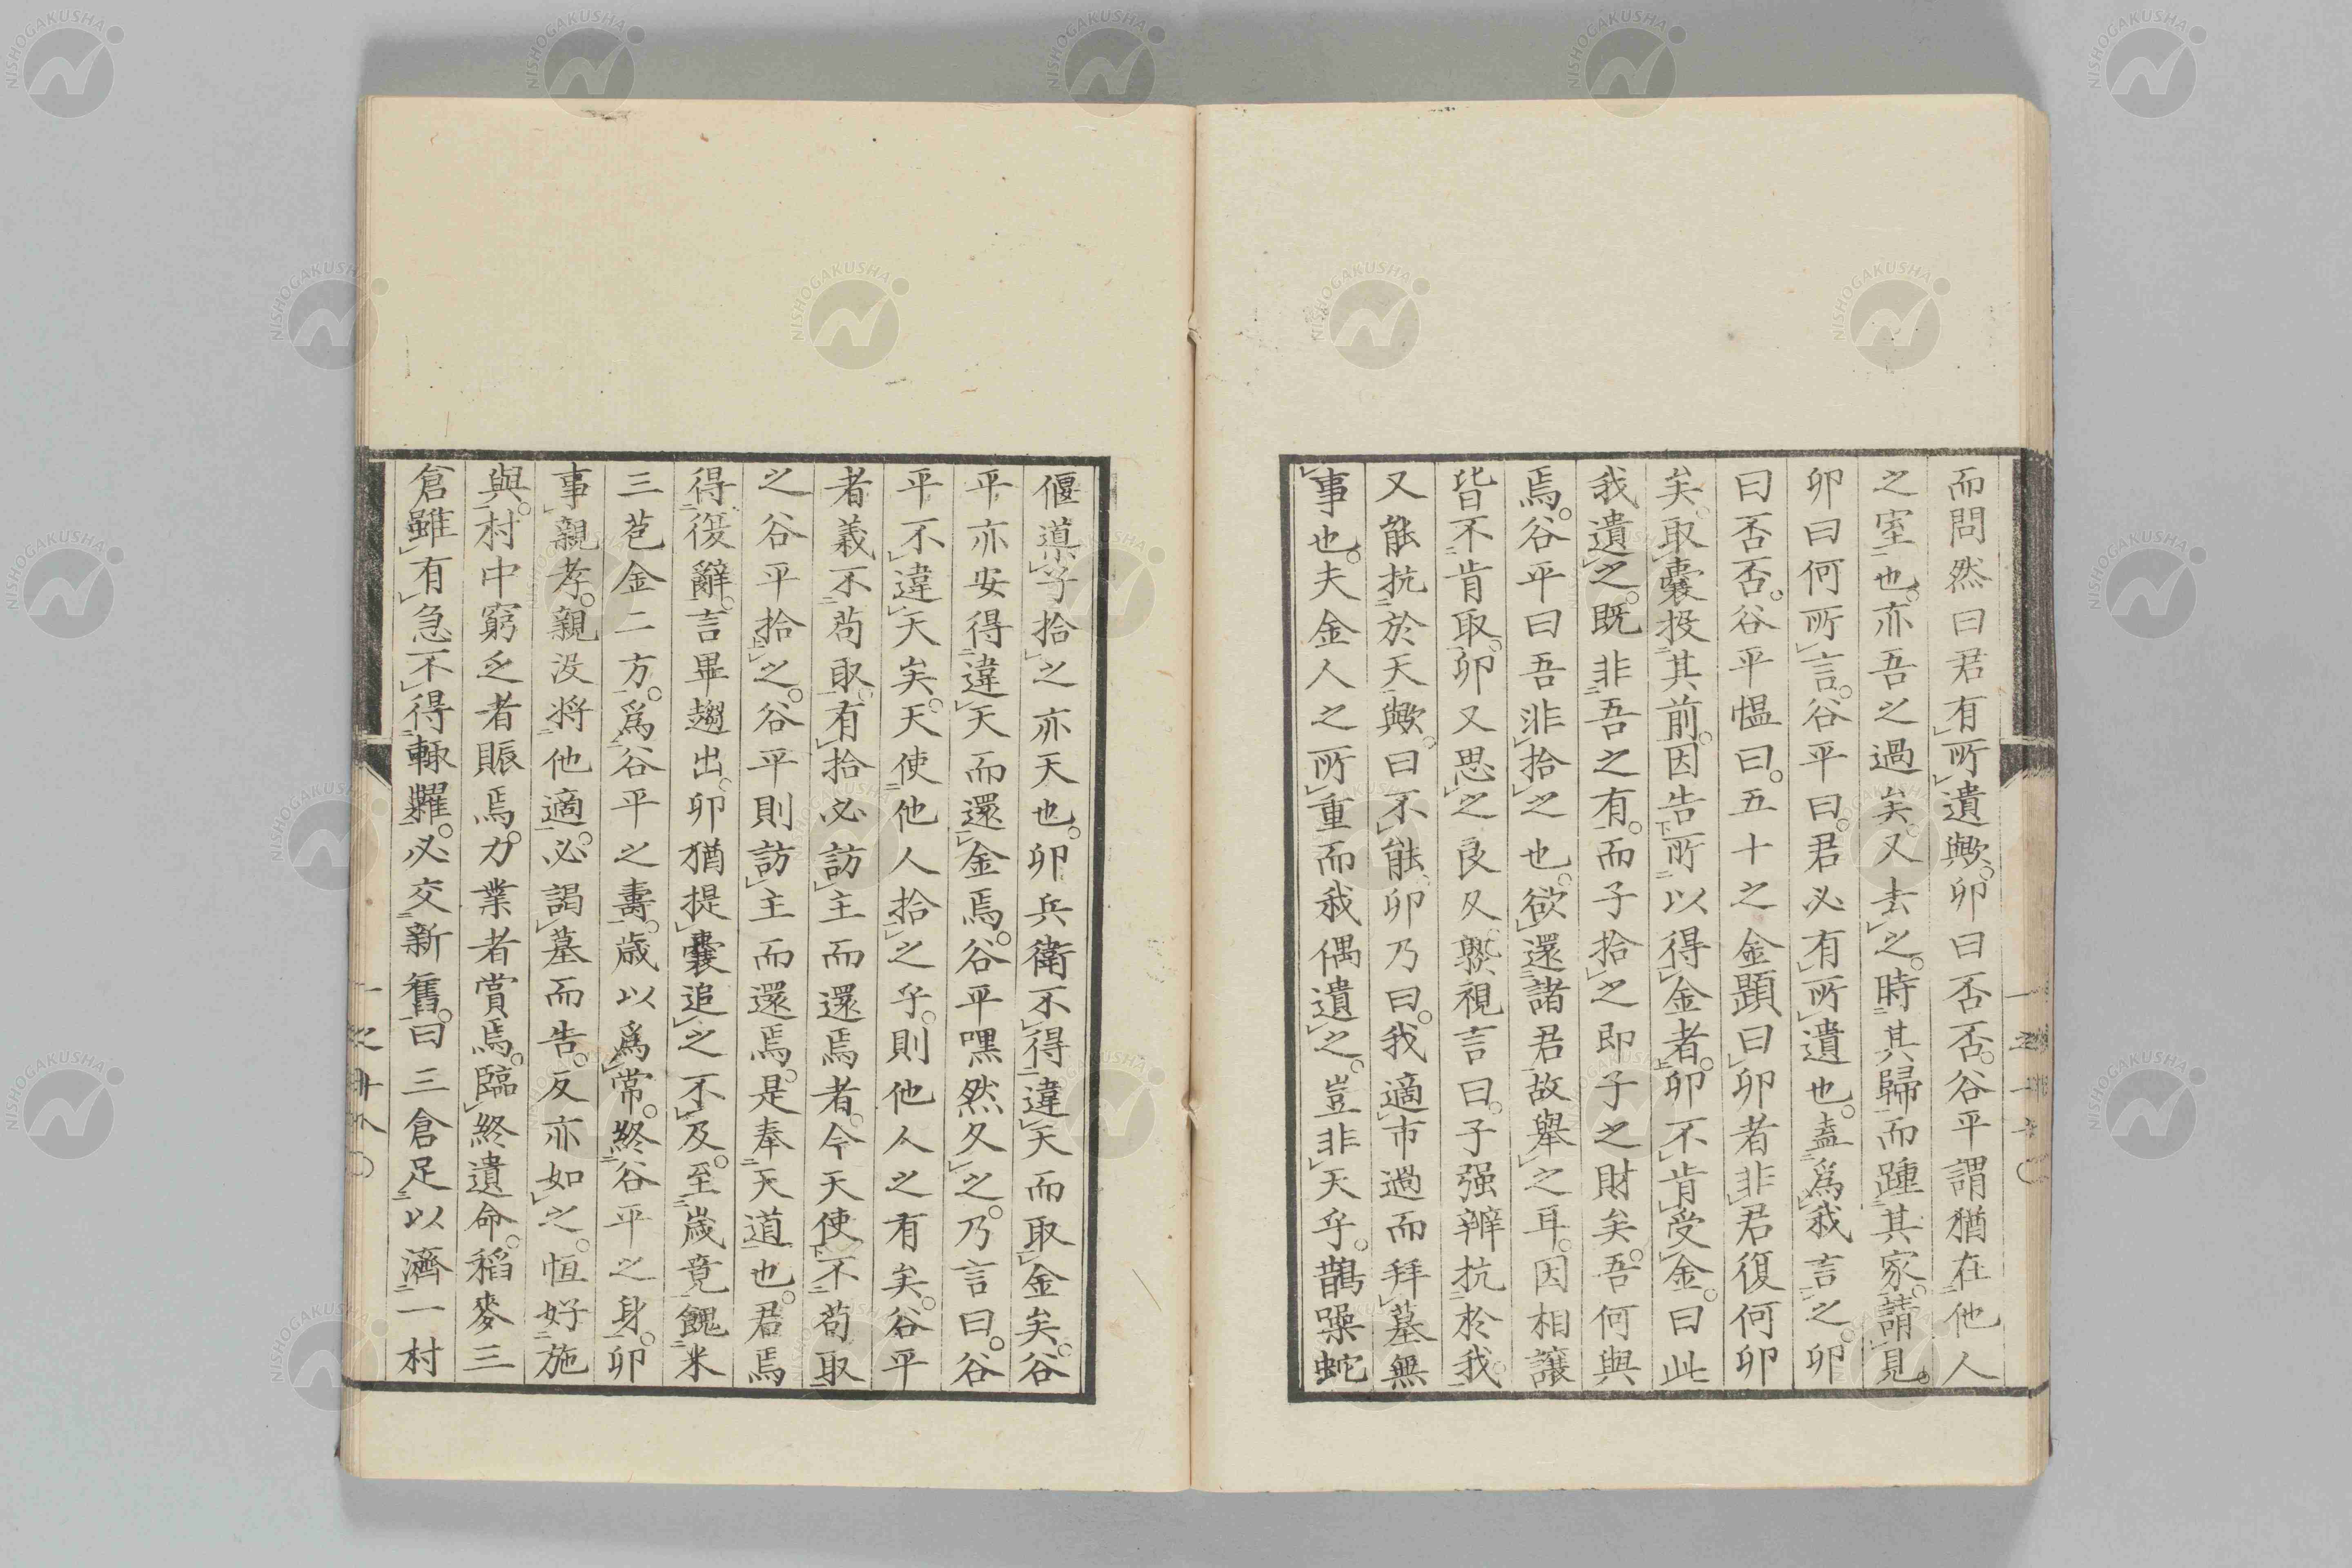 而問然曰君有所遺歟卯曰否否。谷平謂猶在他人
之室也。亦吾之過矣又去之。時其歸而踵其家。請見。
卯曰何所言。谷平曰。君必有所遺也。盍爲我言之卯
曰否否。谷平慍曰。五十之金題曰卯者非君復何卯
矣。取囊投其前。因告所以得金者。卯不肯受金。曰此
我遺之。既非吾之有。而子拾之即子之財矣。吾何與
焉。谷平曰吾非拾之也。欲還諸君故舉之耳。因相讓
皆不肯取。卯又思之良久。熟視言曰。子强辨抗於我。
又能抗於天歟。曰不能。卯乃曰。我適市過而拜墓無
事也。夫金人之所重而我偶遺之。豈非天乎。鵲躁蛇
偃道。子拾之亦天也。卯兵衛不得違天而取金矣。谷
平亦安得違天而還金焉。谷平嘿然久之。乃言曰。谷
平不違天矣。天使他人拾之乎。則他人之有矣。谷平
者義不苟取。有拾必訪主而還焉者。今天使不苟取
之谷平拾之。谷平則訪主而還焉。是奉天道也。君焉
得復辭。言畢趨出。卯猶提囊追之不及。至歲竟餽米
三苞金二方。爲谷平之壽。歲以爲常。終谷平之身。卯
事親孝。親没將他適。必謁墓而告。反亦如之。恒好施
與。村中窮乏者賑焉。力業者賞焉。臨終遺命。稻麥三
倉雖有急不得輙糶。必交新舊。曰三倉足以濟一村